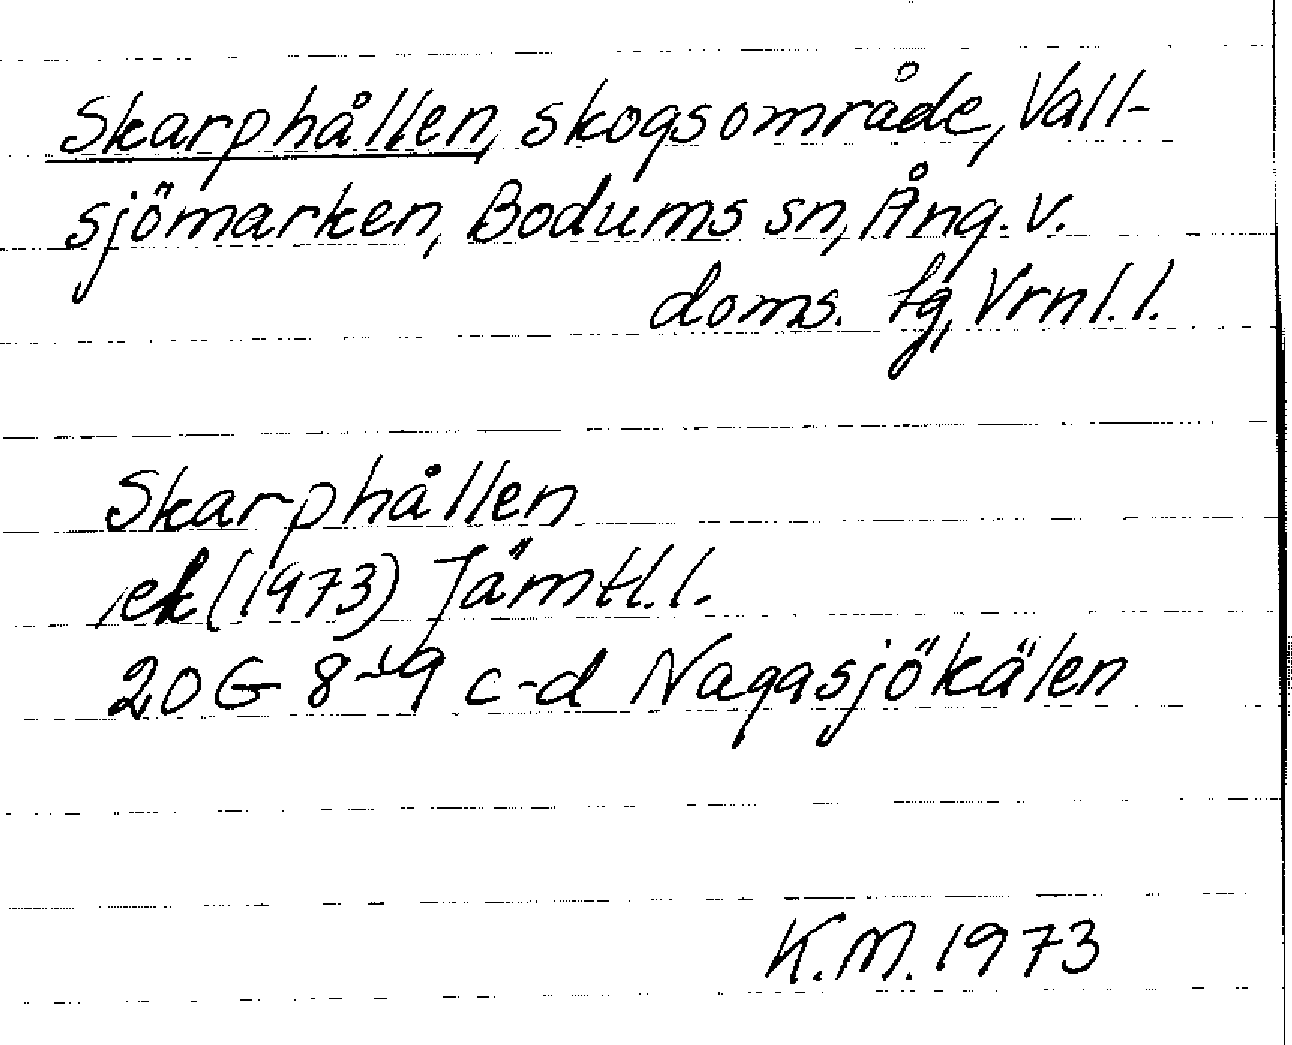 Skarphållen, skogsområde, Vall-
sjömarken, Bodums sn, Ång. v.
doms. tg, Vrnl. l.
Skarphållen
ek (1973) Jämtl. l.
20 G 8-9 c-d Nagasjökälen
K.M. 1973